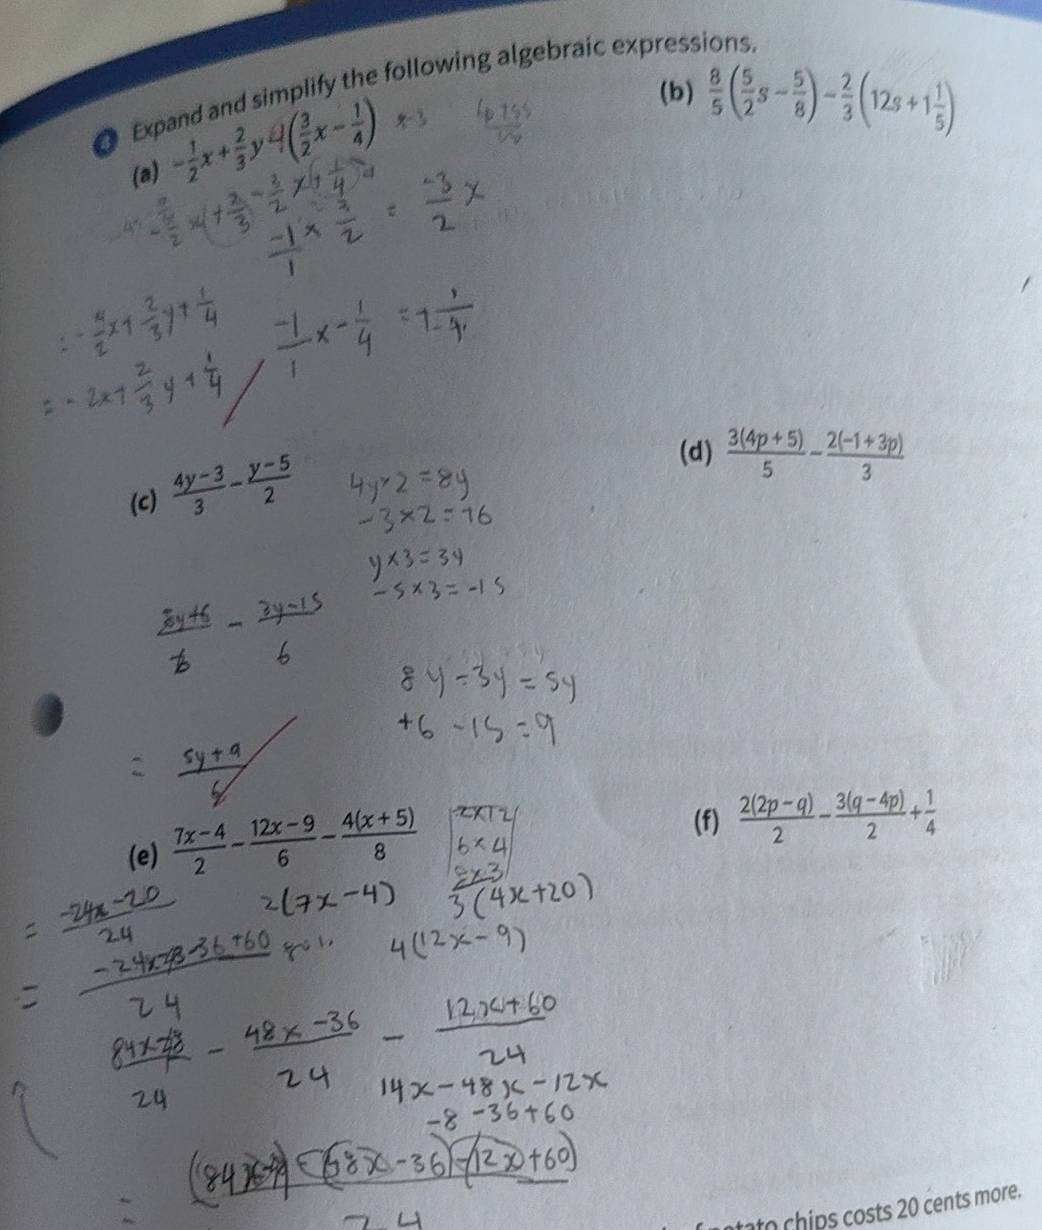 4 Expand and simplify the following algebraic expressions.
(a) -1/2 x + 2/3 y - 1(3/2 x - 1/4)
(b) 8/5 (5/2 s - 5/8) - 2/3 (12s + 1 1/5)
-1/1 × 3/2 = -3/2 x
= -4/2 x + 2/3 y + 1/4
-1/1 x -1/4 = + 1/4
= -2x + 2/3 y + 1/4
(c) (4y - 3)/3 - (y - 5)/2
4y×2 = 8y
-3×2 = +6
y×3 = 3y
-5×3 = -15
(d) 3(4p + 5)/5 - 2(-1 + 3p)/3
(8y+6)/6 - (3y-15)/6
8y - 3y = 5y
+6 - 15 = 9
= (5y + 9)/6
(e) (7x - 4)/2 - (12x - 9)/6 - 4(x + 5)/8
6×4
8×3
(f) 2(2p - q)/2 - 3(q - 4p)/2 + 1/4
= (-24x - 20)/24
2(7x-4)
3(4x+20)
4(12x-9)
= (-24x-8-36+60)/24
(84x-48)/24 - (48x-36)/24 - (12x+60)/24
14x - 48x - 12x
-8 -36 + 60
24
chips costs 20 cents more.